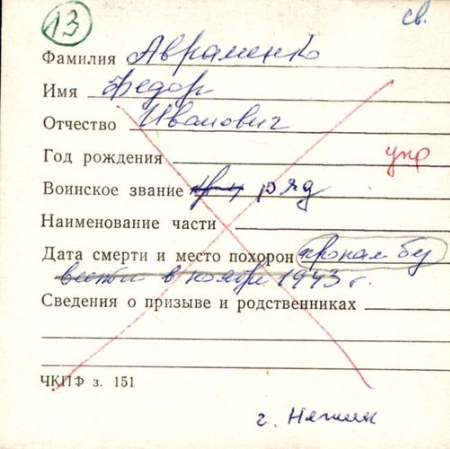 13 св.
Фамилия Авраменко
Имя Федор
Отчество Иванович
Год рождения
упр
Воинское звание ряд
Наименование части
Дата смерти и место похорон пропал без
вести в ноябре 1943 г.
Сведения о призыве и родственниках
ЧКПФ з. 151
г. Нежин